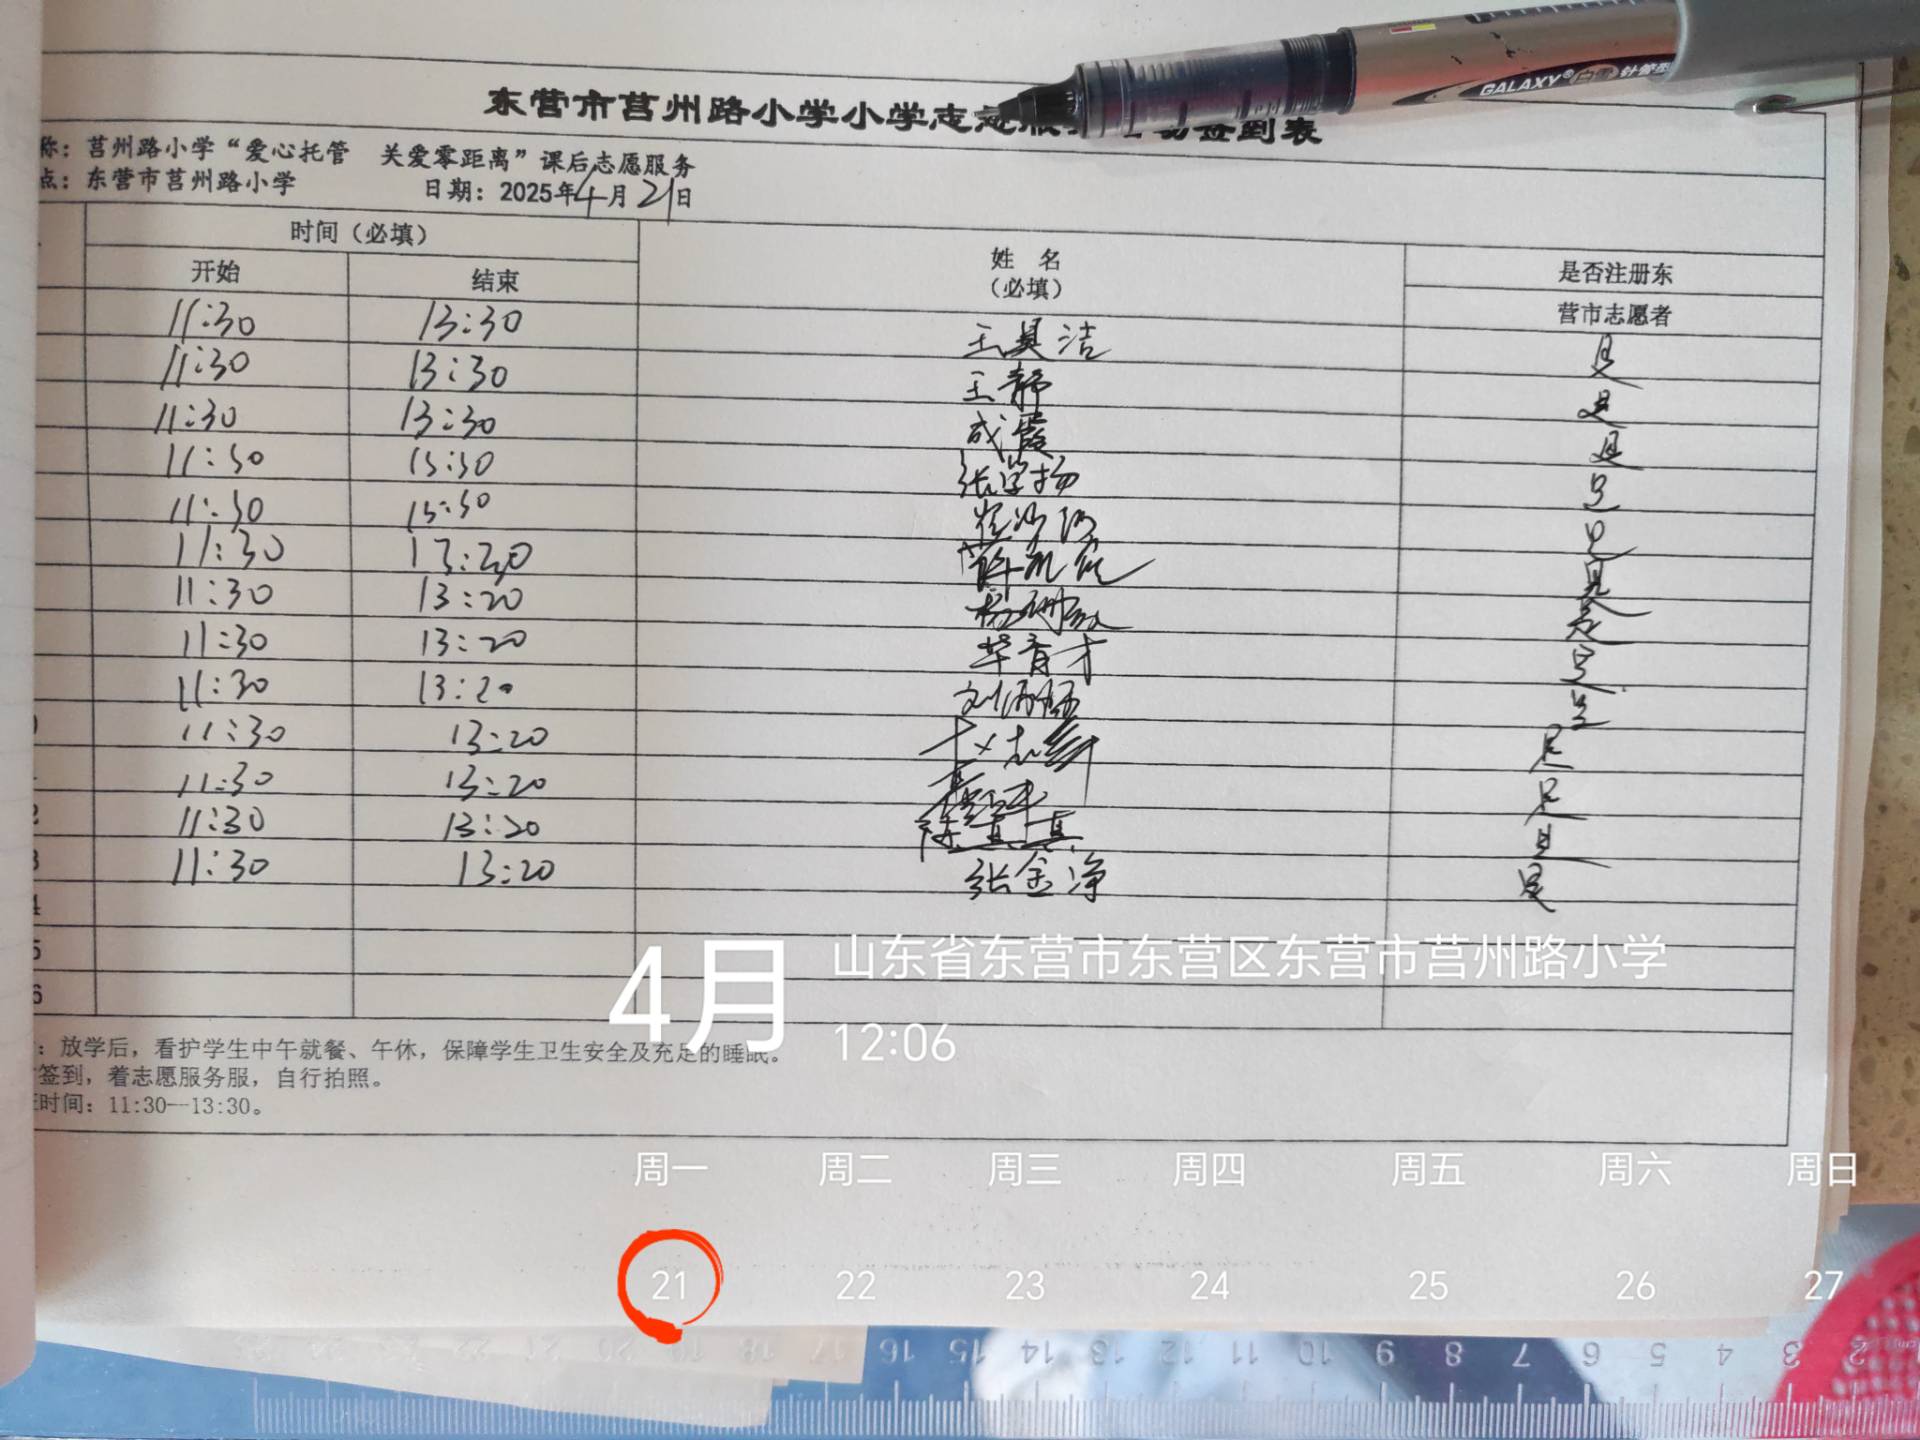 东营市莒州路小学小学志愿 签到表
称：莒州路小学“爱心托管 关爱零距离”课后志愿服务
点：东营市莒州路小学 日期：2025年4月21日
时间（必填） 姓 名 （必填） 是否注册东
开始 结束 营市志愿者
11:30 13:30 王昊洁 是
11:30 13:30 王静 是
11:30 13:30 成霞 是
11:30 13:30 张学扬 是
11:30 13:30 是
11:30 13:20 薛凯 是
11:30 13:20 杨 是
11:30 13:20 华育才 是
11:30 13:20 刘 是
11:30 13:20 是
11:30 13:20 是
2 11:30 13:20 陈真真 是
3 11:30 13:20 张金净 是
4
5
6
：放学后，看护学生中午就餐、午休，保障学生卫生安全及充足的睡眠。
签到，着志愿服务服，自行拍照。
时间：11:30—13:30。
4月
山东省东营市东营区东营市莒州路小学
12:06
周一 周二 周三 周四 周五 周六 周日
21 22 23 24 25 26 27
GALAXY® 白雪 针管型
17 16 15 14 13 12 11 10 9 8 7 6 5 4 3 2